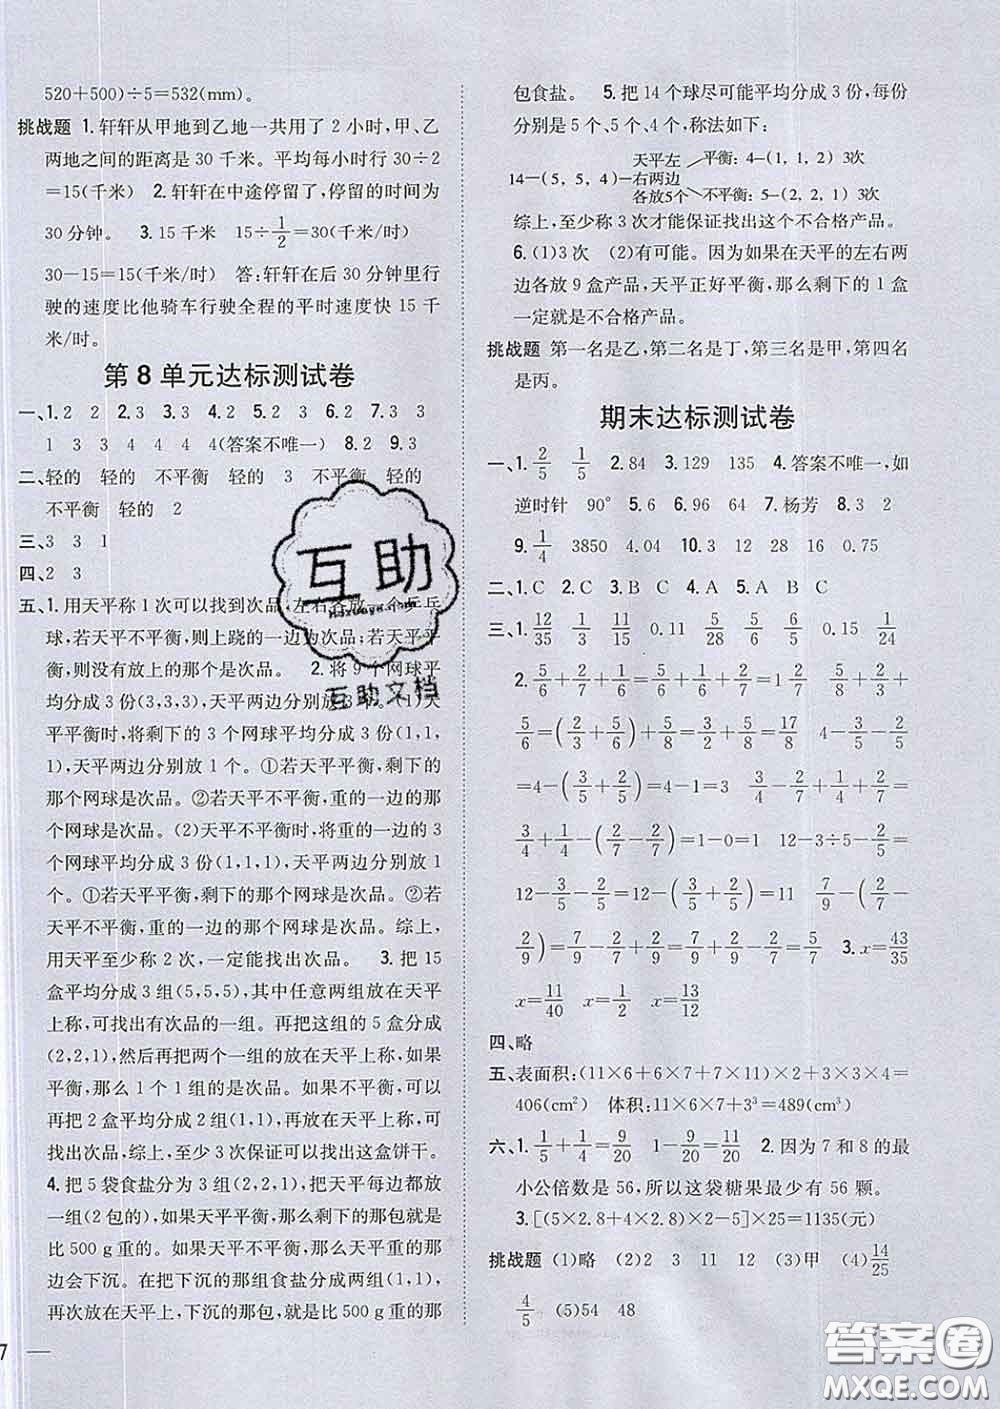 520+500)÷5=532(mm)。
挑战题 1.轩轩从甲地到乙地一共用了 2 小时,甲、乙
两地之间的距离是 30 千米。平均每小时行 30÷2
=15(千米) 2.轩轩在中途停留了,停留的时间为
30分钟。 3.15 千米 15÷1/2=30(千米/时)
30-15=15(千米/时) 答:轩轩在后 30 分钟里行
驶的速度比他骑车行驶全程的平时速度快 15 千
米/时。
第 8 单元达标测试卷
一、1.2 2 2.3 3.3 4.2 5.2 3 6.2 7.3 3
1 3 3 4 4 4(答案不唯一) 8.2 9.3
二、轻的 轻的 不平衡 轻的 3 不平衡 轻的
不平衡 轻的 2
三、3 3 1
四、2 3
五、1.用天平称 1 次可以找到次品,左右各放一个乒乓
球,若天平不平衡,则上跷的一边为次品;若天平平
衡,则没有放上的那个是次品。 2.将 9 个网球平
均分成 3 份(3,3,3),天平两边分别放 3 个。(1)天
平平衡时,将剩下的 3 个网球平均分成 3 份(1,1,
1),天平两边分别放 1 个。①若天平平衡,剩下的那
个网球是次品。②若天平不平衡,重的一边的那
个网球是次品。(2)天平不平衡时,将重的一边的 3
个网球平均分成 3 份(1,1,1),天平两边分别放 1
个。①若天平平衡,剩下的那个网球是次品。②若
天平不平衡,重的一边的那个网球是次品。综上,
用天平至少称 2 次,一定能找出次品。 3.把 15
盒平均分成 3 组(5,5,5),其中任意两组放在天平
上称,可找出有次品的一组。再把这组的 5 盒分成
(2,2,1),然后再把两个一组的放在天平上称,如果
平衡,那么 1 个 1 组的是次品。如果不平衡,那么
再把 2 盒平均分成 2 组(1,1),再放在天平上称,可
找出次品。综上,至少 3 次保证可以找出这盒饼干。
4.把 5 袋食盐分为 3 组(2,2,1),把天平每边都放
一组(2 包的),如果天平平衡,那么剩下的那包就是
比 500 g 重的。如果天平不平衡,那么重的那
边会下沉。在把下沉的那组食盐分成两组(1,1),
再次放在天平上,下沉的那包,就是比 500 g 重的那
包食盐。 5.把 14 个球尽可能平均分成 3 份,每份
分别是 5 个、5个、4个,称法如下:
14—(5,5,4)—天平左右两边各放5个 平衡:4—(1,1,2) 3次
不平衡:5—(2,2,1) 3次
综上,至少称 3 次才能保证找出这个不合格产品。
6.(1)3次 (2)有可能。因为如果在天平的左右两
边各放 9 盒产品,天平正好平衡,那么剩下的 1 盒
一定就是不合格产品。
挑战题 第一名是乙,第二名是丁,第三名是甲,第四名
是丙。
期末达标测试卷
一、1.2/5 1/5 2.84 3.129 135 4.答案不唯一,如
逆时针 90° 5.6 6.96 64 7.杨芳 8.3 3
9.1/4 3850 4.04 10.3 12 28 16 0.75
二、1.C 2.C 3.C 4.A 5.A B C
三、1.12/35 3/11 11/15 0.11 5/28 5/6 6/5 1/24
2.5/6+2/7+1/6+5/7=5/6+1/6+2/7+5/7=1+1=2 5/8+3/2+
5/6=5/8+(2/3+5/6)=5/8+3/2=5/8+12/8=17/8 4-3/5-2/5
=4-(3/5+2/5)=4-1=3 3/4-2/7+1/4-2/7=
3/4+1/4-(2/7-2/7)=1-0=1 12-3÷5-2/5=
12-3/5-2/5=12-(3/5+2/5)=12-1=11 7/9-(2/7-
2/9)=7/9-2/7+2/9=7/9+2/9-2/7=1-2/7=5/7 3.x=43/35
x=11/40 x=1/2 x=13/12
四、略
五、表面积:(11×6+6×7+7×11)×2+3×3×4=
406(cm²) 体积:11×6×7+3³=489(cm³)
六、1.1/5+1/4=9/20 1-9/20=11/20 2.因为 7 和 8 的最
小公倍数是 56,所以这袋糖果最少有 56 颗。
3.[(5×2.8+4×2.8)×2-5]×25=1135(元)
挑战题 (1)略 (2)2 3 11 12 (3)甲 (4)14/25
4/5 (5)54 48
互助
互助文档
答案圈
MXQE.COM
7